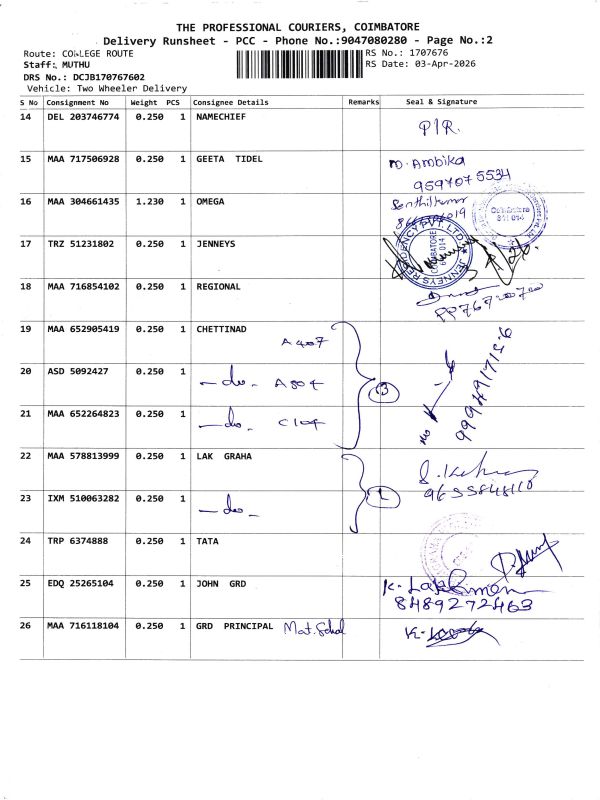 THE PROFESSIONAL COURIERS, COIMBATORE
Delivery Runsheet - PCC - Phone No.:9047080280 - Page No.:2
Route: COLLEGE ROUTE RS No.: 1707676
Staff: MUTHU RS Date: 03-Apr-2026
DRS No.: DCJB170767602
Vehicle: Two Wheeler Delivery
S No Consignment No Weight PCS Consignee Details Remarks Seal & Signature
14 DEL 203746774 0.250 1 NAMECHIEF P/R.
15 MAA 717506928 0.250 1 GEETA TIDEL M. Ambika
9597075534
16 MAA 304661435 1.230 1 OMEGA Senthilkumar
Coimbatore
641 014
17 TRZ 51231802 0.250 1 JENNEYS
JENNEYS RESIDENCY PVT. LTD
COIMBATORE
641 014
18 MAA 716854102 0.250 1 REGIONAL
19 MAA 652905419 0.250 1 CHETTINAD
A407
20 ASD 5092427 0.250 1 -do- A804 3
21 MAA 652264823 0.250 1 -do- C104
22 MAA 578813999 0.250 1 LAK GRAHA
9655848110
23 IXM 510063282 0.250 1 -do-
24 TRP 6374888 0.250 1 TATA
25 EDQ 25265104 0.250 1 JOHN GRD
8489272463
26 MAA 716118104 0.250 1 GRD PRINCIPAL Mat. School